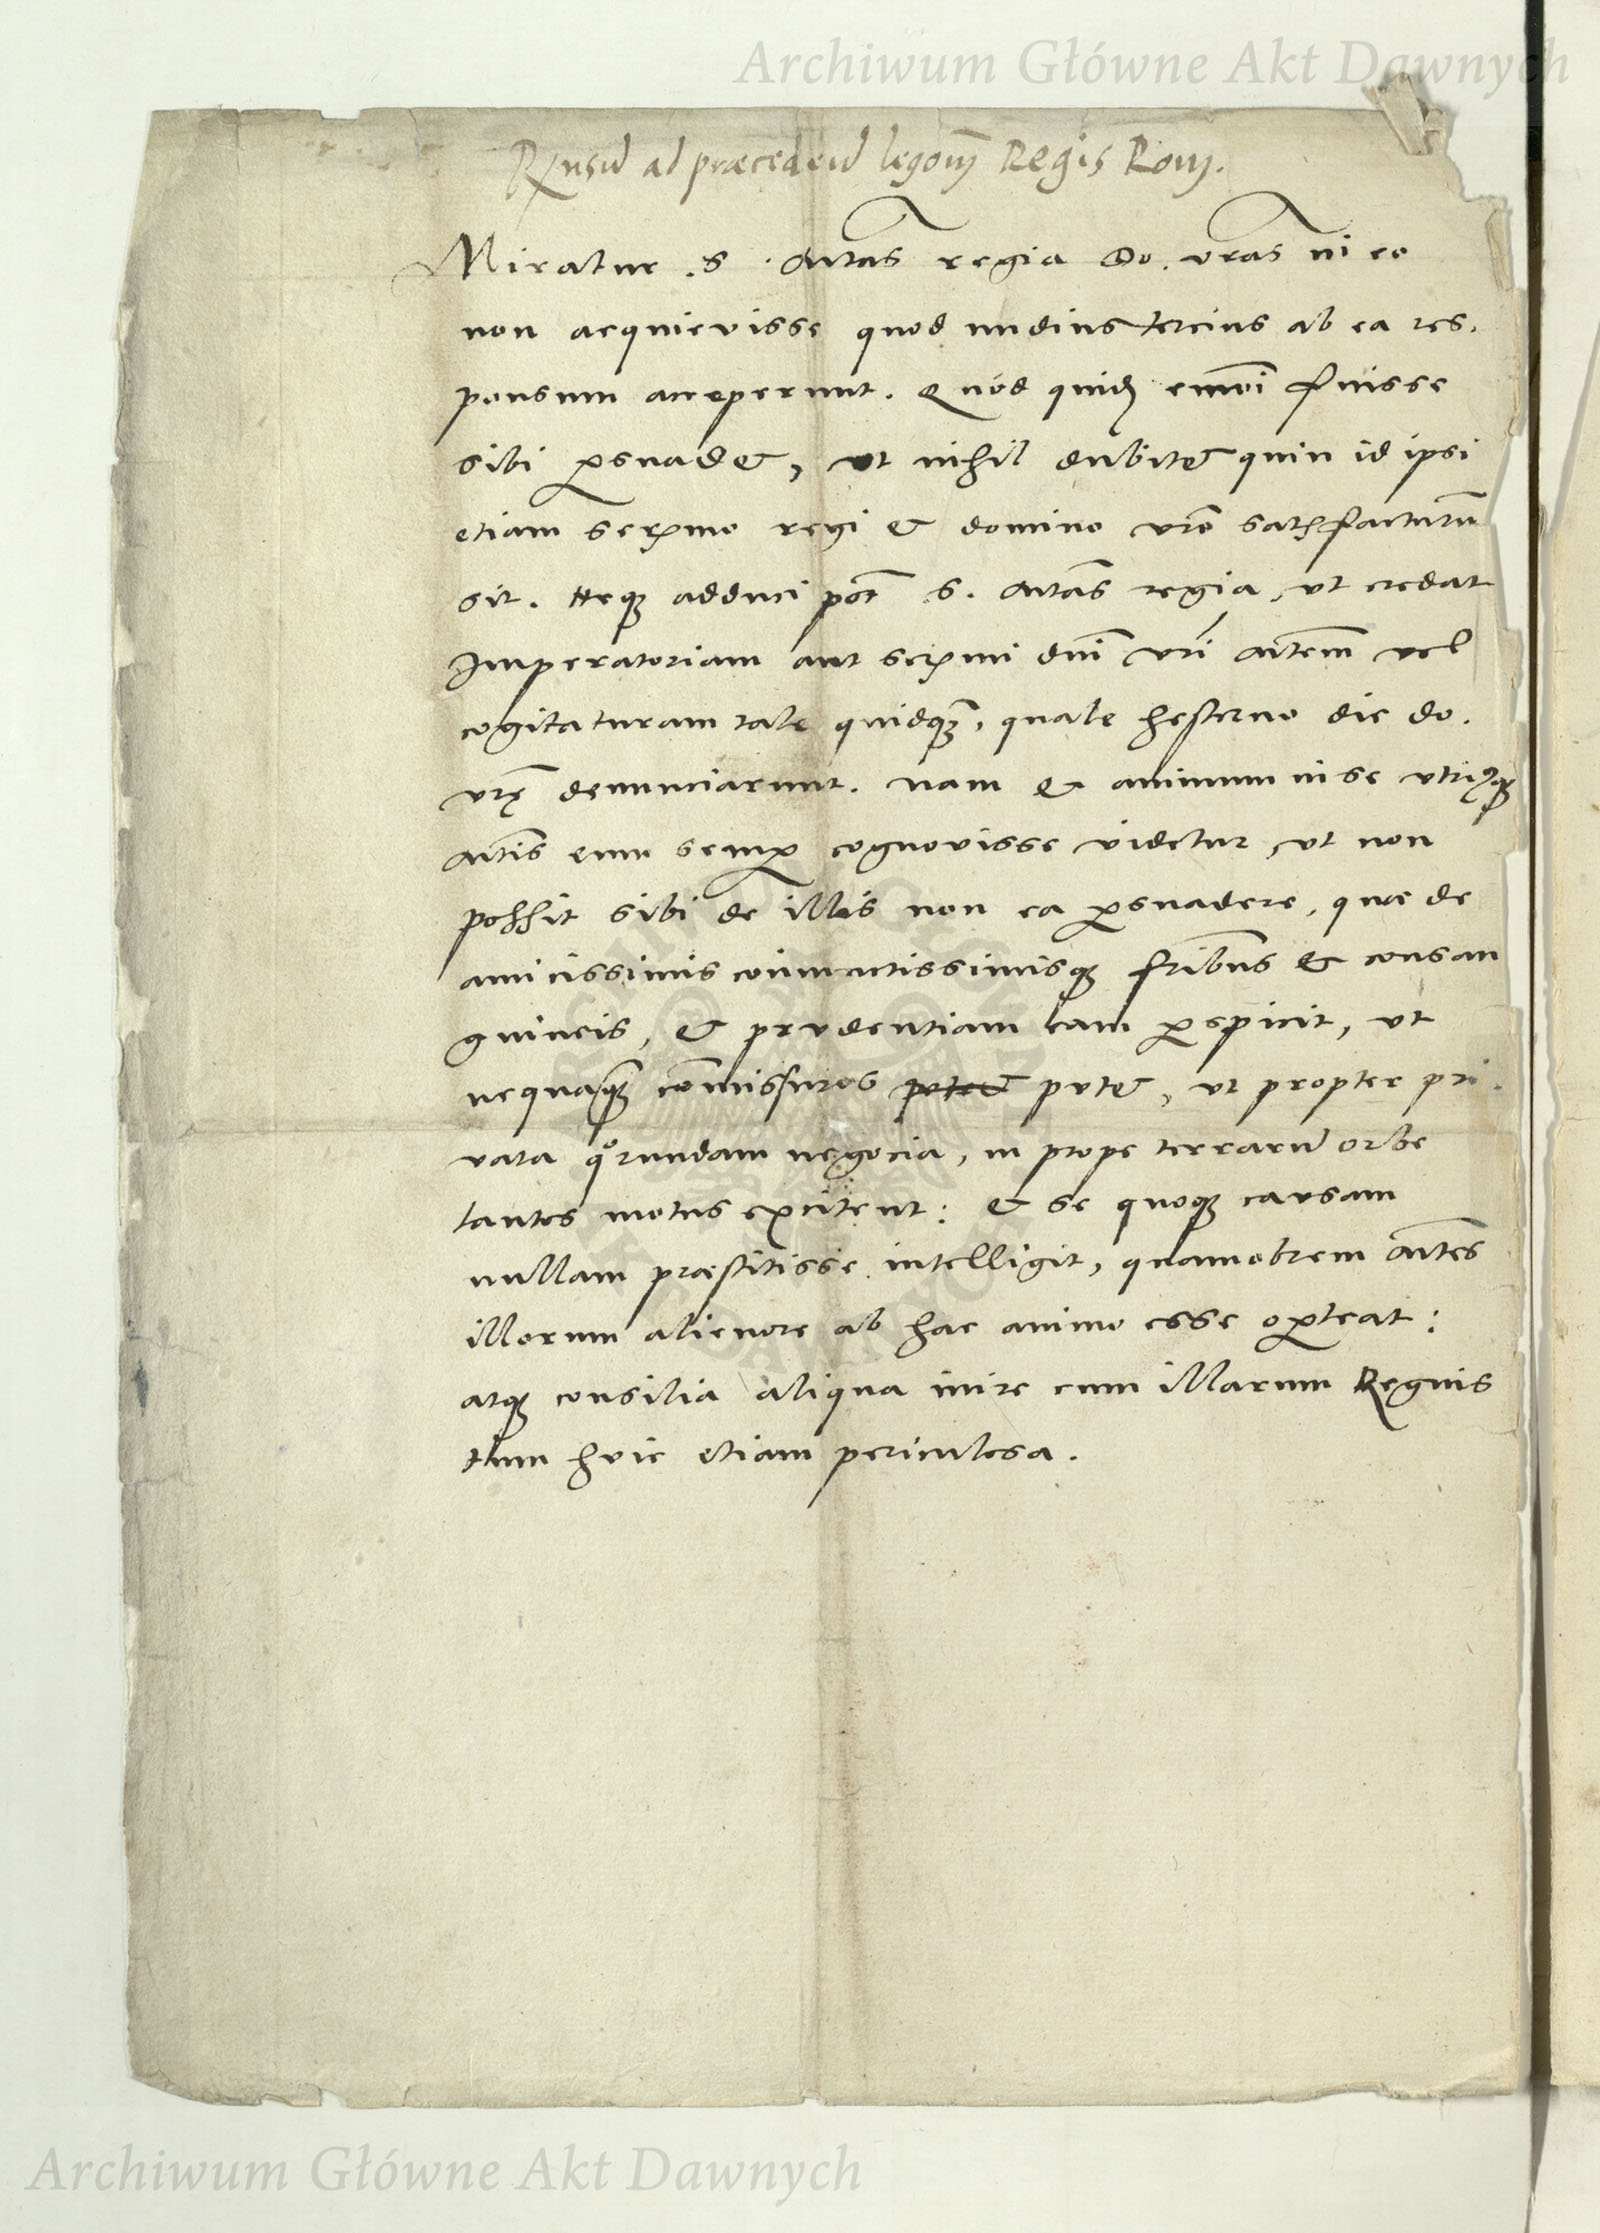 Archiwum Główne Akt Dawnych
Rx̄nsu̅ ad præcedeu̅ legom̅ Regis Rom.
Miratur .S. Mtas regia Do. vras in eo
non acquievisse quod nudiustercius ab ea res.
ponsum acceperunt. Quod quid̅ eiusmōi fuisse
sibi ꝑsuadet, ut nihil dubitet quin id ipsi
etiam serꝫmo regi & domino vrō satisfacturu̅
sit. Neqꝫ adduci pōt S. Mtās regia, ut credat
Imperatoriam aut serꝫmi dn̄i vr̄i Mtem̅ vel
cogitaturam tale quidqꝫ, quale hesterno die do.
vrę̄ denunciarunt. nam & animum in se utriusqꝫ
Mtis̄ eum semꝑ cognovisse videtur, ut non
possit sibi de illis non ea ꝑsuadere, quæ de
amicissimis coniunctissimisqꝫ fribus̄ & consan
guineis, & prudentiam eam ꝑspicit, ut
nequaqꝫ co̅missuros putet putet, ut propter pri.
vata quorundam negocia, in prope terraru̅ orbe
tantos motus excitent: & se quoqꝫ causam
nullam præstitisse intelligit, quamobrem Mtes̄
illorum alienore ab hac animo esse oꝑteat:
atqꝫ consilia aliqua inire cum illarum Regnis
tum huic etiam periculosa.
Archiwum Główne Akt Dawnych